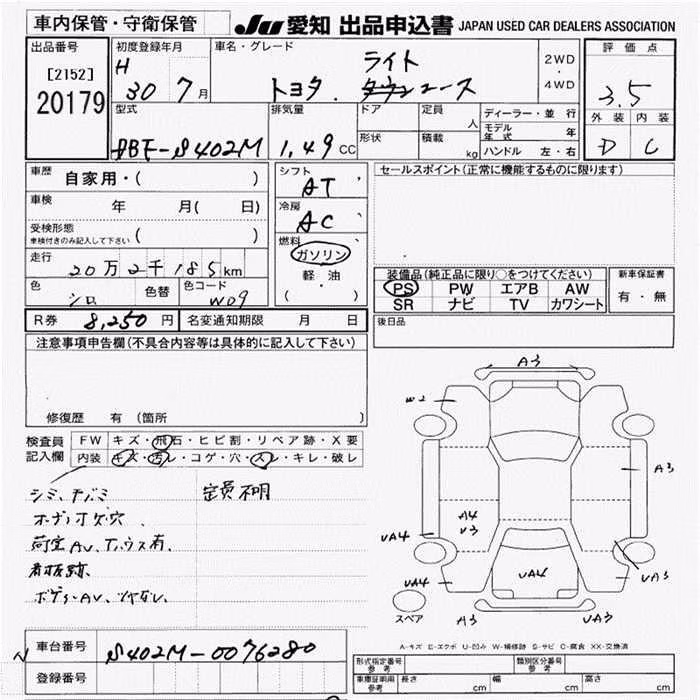 車内保管・守衛保管
JU 愛知 出品申込書 JAPAN USED CAR DEALERS ASSOCIATION
出品番号
[2152]
20179
初度登録年月
H
30 7月
車名・グレード
ライト
トヨタ . タウンエース
2WD
・
4WD
評価点
3.5
外装 内装
D C
型式
DBF-S402M
排気量
1.49 CC
ドア
形状
定員
人
積載
kg
ディーラー・並行
モデル年式 年
ハンドル 左・右
車歴 自家用・( )
車検 年 月( 日)
受検形態
車検付きのみ記入して下さい ( )
走行 20万2千185km
色 シロ 色替 色コード W09
シフト
AT
冷房
AC
燃料
ガソリン
軽・油
( )
セールスポイント(正常に機能するものに限ります)
装備品(純正品に限り○をつけてください)
PS PW エアB AW
SR ナビ TV カワシート
新車保証書
有・無
R券 8,250円 名変通知期限 月 日
後日品
注意事項申告欄(不具合内容等は具体的に記入して下さい)
修復歴 有 (箇所 )
検査員
記入欄
FW キズ・飛石・ヒビ割・リペア跡・X要
内装 キズ・汚レ・コゲ・穴・スレ・キレ・破レ
定員不明
ボディ
荷室AU、
看板跡、
ボディーAU、
A3
W2
A3
UA4
A4
U3
UA4
UA4
UA3
A3
UA3
スペア
A-キズ E-エクボ U-凹み W-補修跡 S-サビ C-腐食 XX-交換済
車台番号 S402M-0076280
登録番号
形式指定番号
参考
類別区分番号
参考
車庫証明用
参考
長さ cm 幅 cm 高さ cm